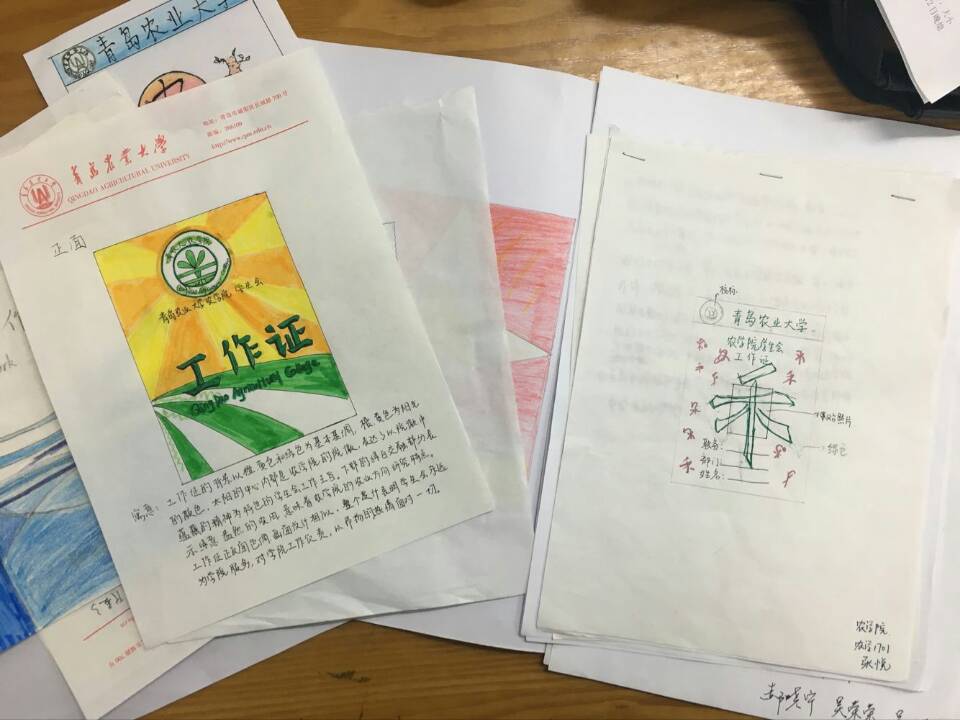 青岛农业大学
青島农業大学
QINGDAO AGRICULTURAL UNIVERSITY
地址：青岛市城阳区长城路700号
邮编：266109
http://www.qau.edu.cn
正面
青岛农业大学农学院 学生会
工作证
QingDao Agricultural College
寓意：工作证的背景以橙黄色和绿色为基本基调，橙黄色为阳光
的颜色，太阳的中心内部是农学院的院徽，表达了以院徽中
蕴藏的精神为特色的学生会工作主旨。下部的绿白交融部分表
示绿意盎然的农田，意味着农学院的农业方向研究特点。
工作证正反面色调画面设计相似，整个设计表明学生会永远
为学院服务，对学院工作负责，以昂扬的热情面对一切。
校徽
青岛农业大学
农学院学生会
工作证
禾
照片
绿色
职务：
部门：
姓名：
农学院
农学1701
张悦